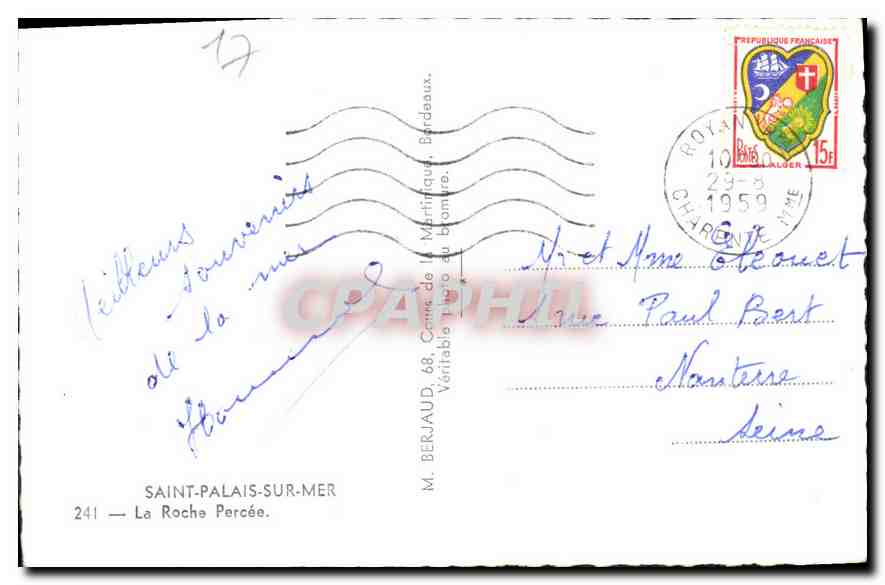 17
REPUBLIQUE FRANÇAISE
POSTES
15F
ALGER
ROYAN
29-8
1959
CHARENTE MME
Meilleurs
souvenirs
de la mer
Mr et Mme
1 rue Paul Bert
Nanterre
Seine
M. BERJAUD, 68, Cours de la Martinique, Bordeaux.
Véritable photo au bromure.
CPAPHIL
SAINT-PALAIS-SUR-MER
241 — La Roche Percée.